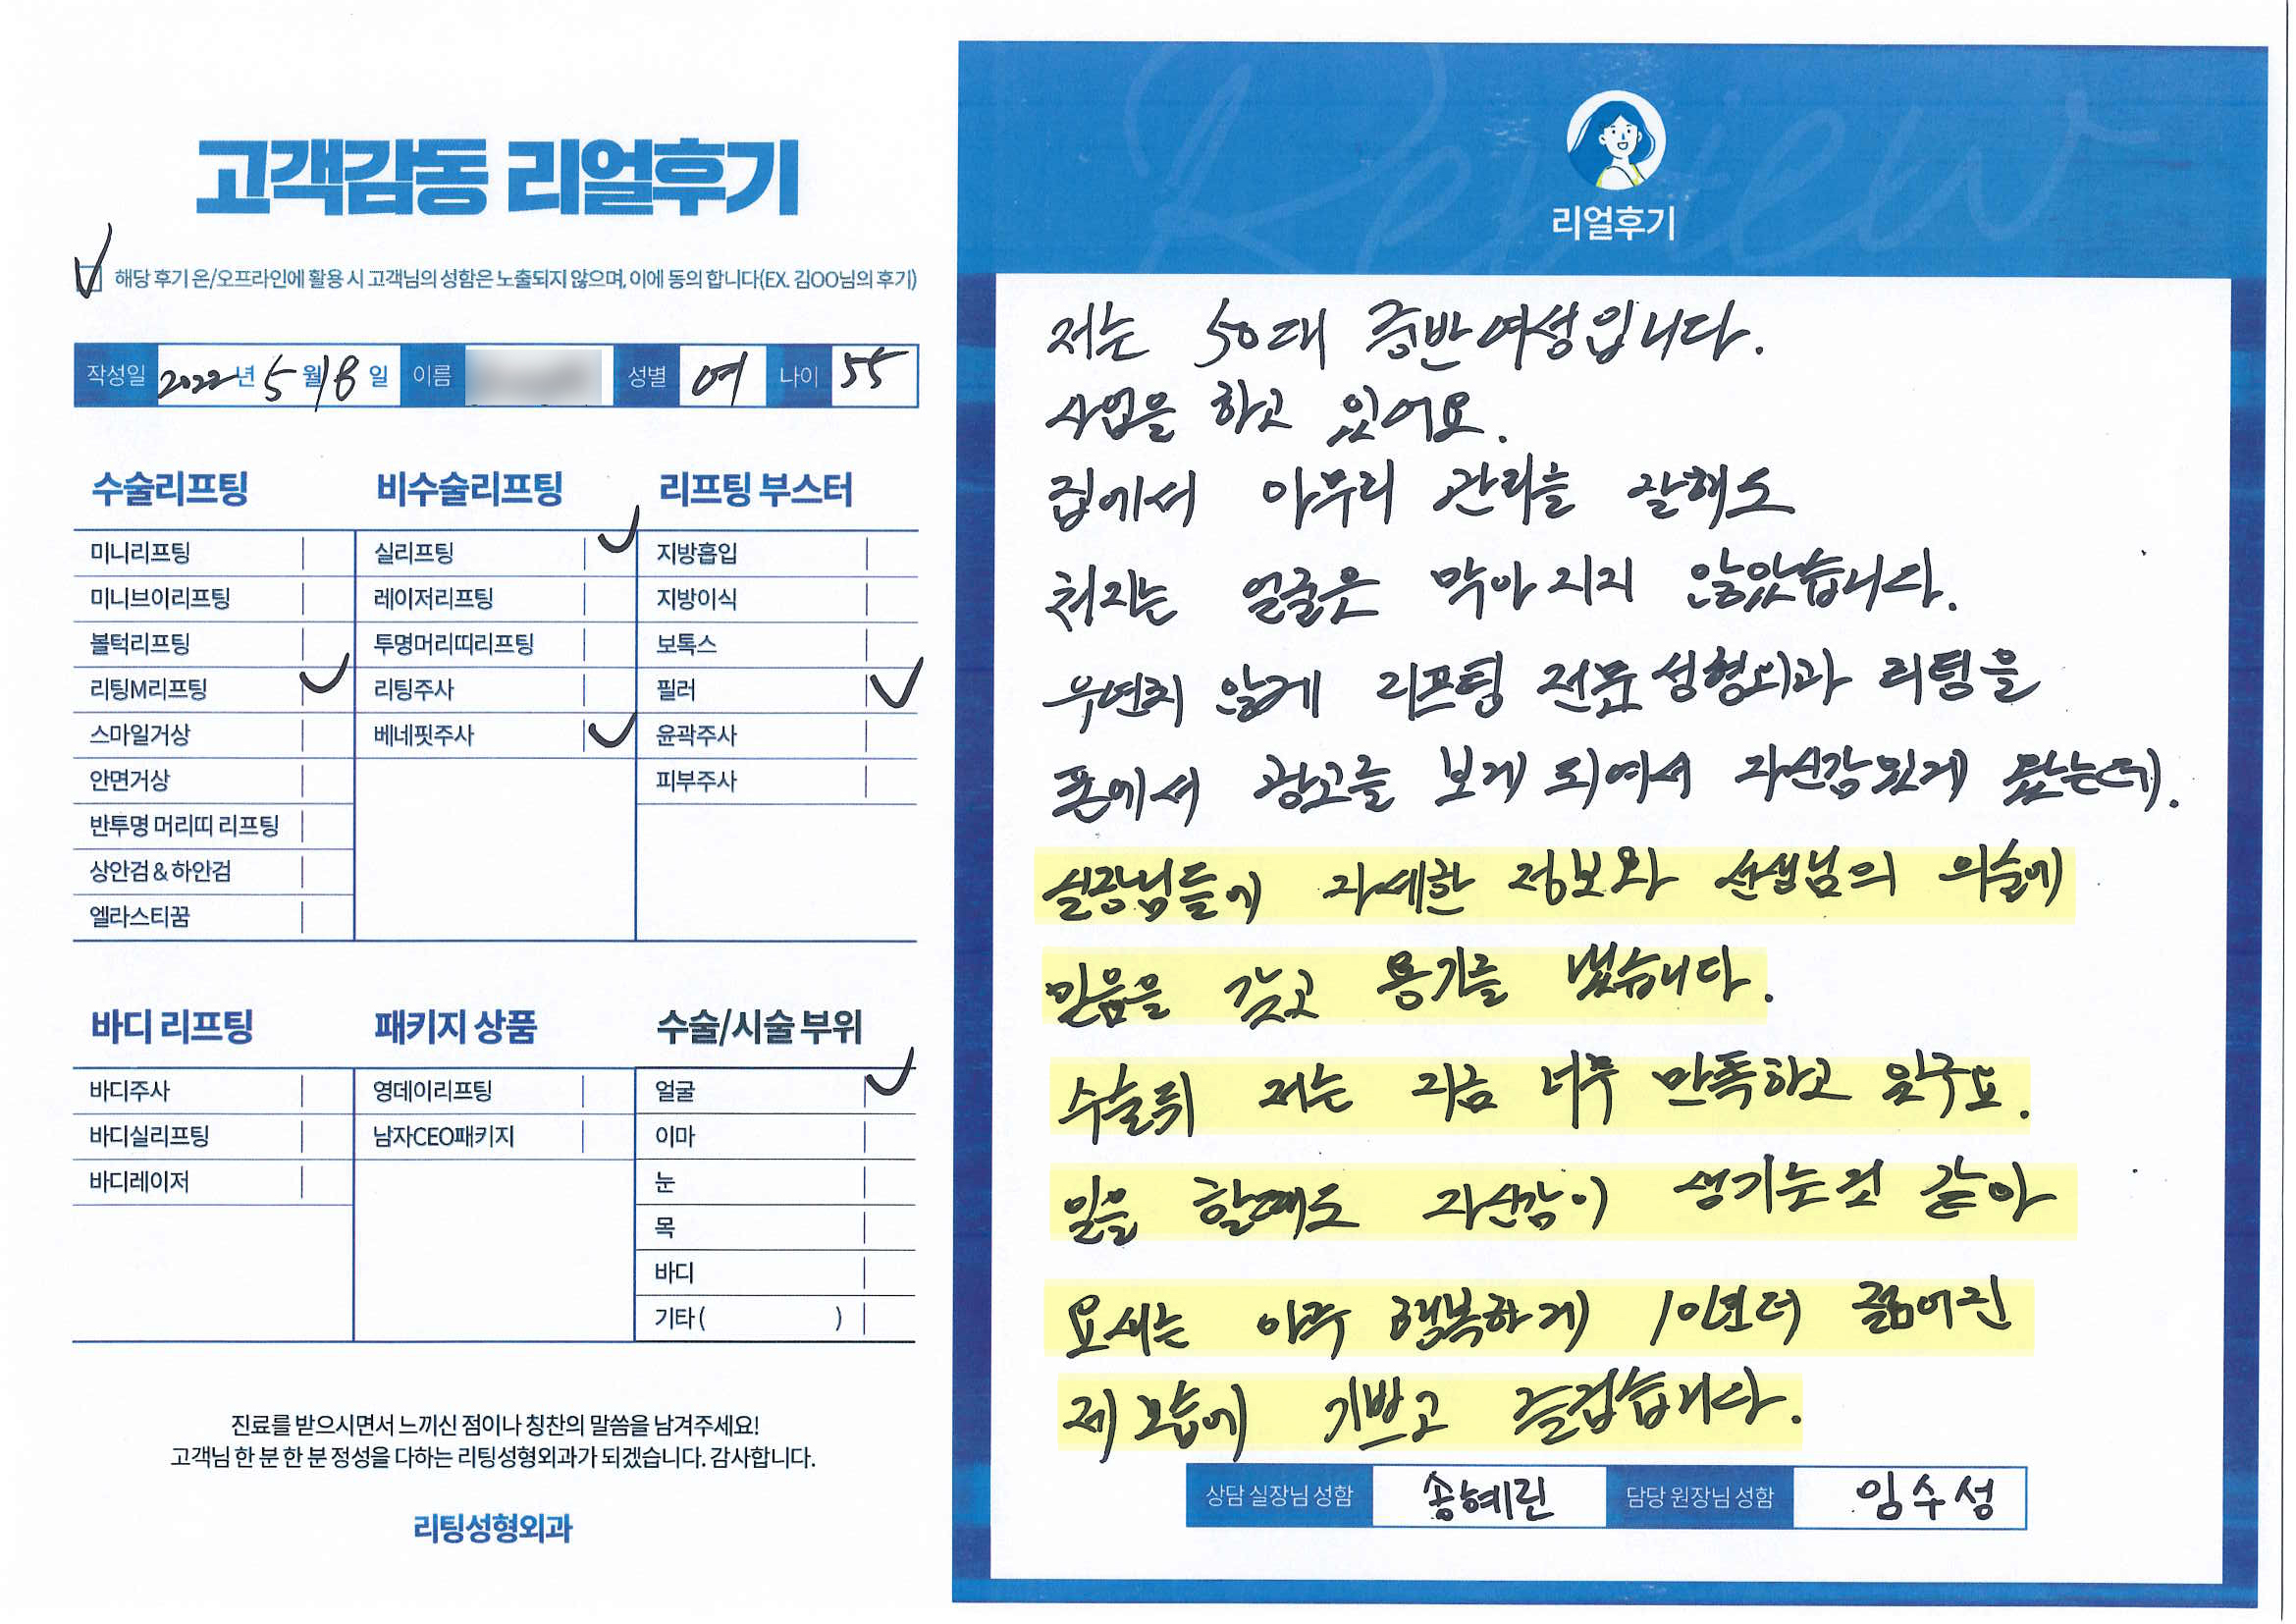 고객감동 리얼후기
✓ 해당 후기 온/오프라인에 활용 시 고객님의 성함은 노출되지 않으며, 이에 동의 합니다(EX. 김OO님의 후기)
작성일 2022년 5월 18일 이름 성별 여 나이 55
수술리프팅
미니리프팅
미니브이리프팅
볼턱리프팅
리팅M리프팅 ✓
스마일거상
안면거상
반투명 머리띠 리프팅
상안검 & 하안검
엘라스티꿈
비수술리프팅
실리프팅 ✓
레이저리프팅
투명머리띠리프팅
리팅주사
베네핏주사 ✓
리프팅 부스터
지방흡입
지방이식
보톡스
필러 ✓
윤곽주사
피부주사
바디 리프팅
바디주사
바디실리프팅
바디레이저
패키지 상품
영데이리프팅
남자CEO패키지
수술/시술 부위
얼굴 ✓
이마
눈
목
바디
기타 ( )
진료를 받으시면서 느끼신 점이나 칭찬의 말씀을 남겨주세요!
고객님 한 분 한 분 정성을 다하는 리팅성형외과가 되겠습니다. 감사합니다.
리팅성형외과
Review
리얼후기
저는 50대 중반여성입니다.
사업을 하고 있어요.
집에서 아무리 관리를 잘해도
처지는 얼굴은 막아 지지 않았습니다.
우연치 않게 리프팅 전문 성형외과 리팅을
폰에서 광고를 보게 되여서 자신감있게 왔는데.
실장님들에 자세한 정보와 선생님의 의술에
믿음을 갖고 용기를 냈습니다.
수술뒤 저는 지금 너무 만족하고 있구요.
일을 할때도 자신감이 생기는것 같아
요새는 아주 행복하게 10년더 젊어진
제 모습에 기쁘고 즐겁습니다.
상담 실장님 성함 송혜린 담당 원장님 성함 임수성